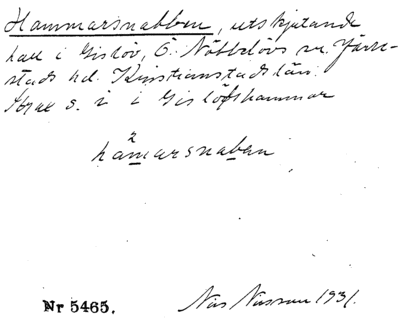 Hammarsnabben, utskjutande
hall i Gislöv, Ö. Nöbbelövs sn. Järre-
stads hd. Kristianstads län.
s. i Gislöfshammar
2
hamarsnaban
Nr 5465.
1931.